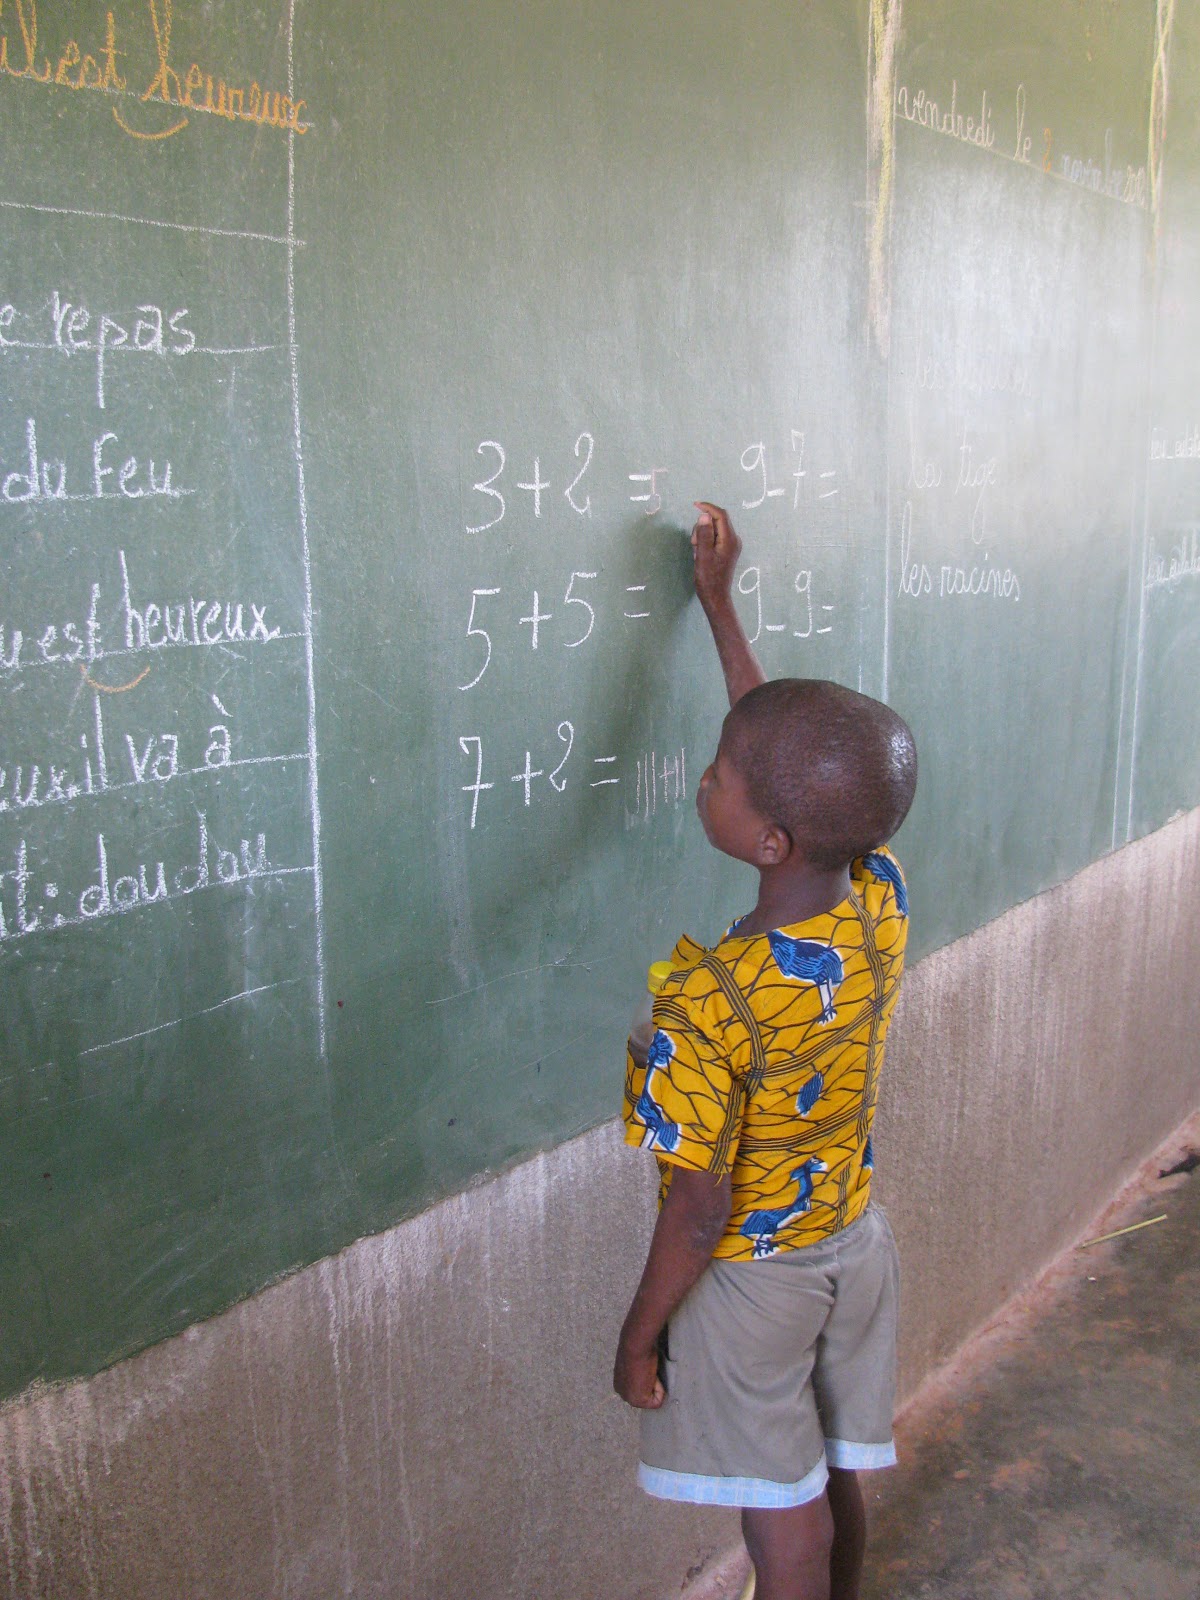 il est heureux
repas
du feu
est heureux
il va à
: doudou
3+2 =5
5+5 =
7+2 =
9-7=
9-9=
vendredi le 2 novembre
la tige
les racines